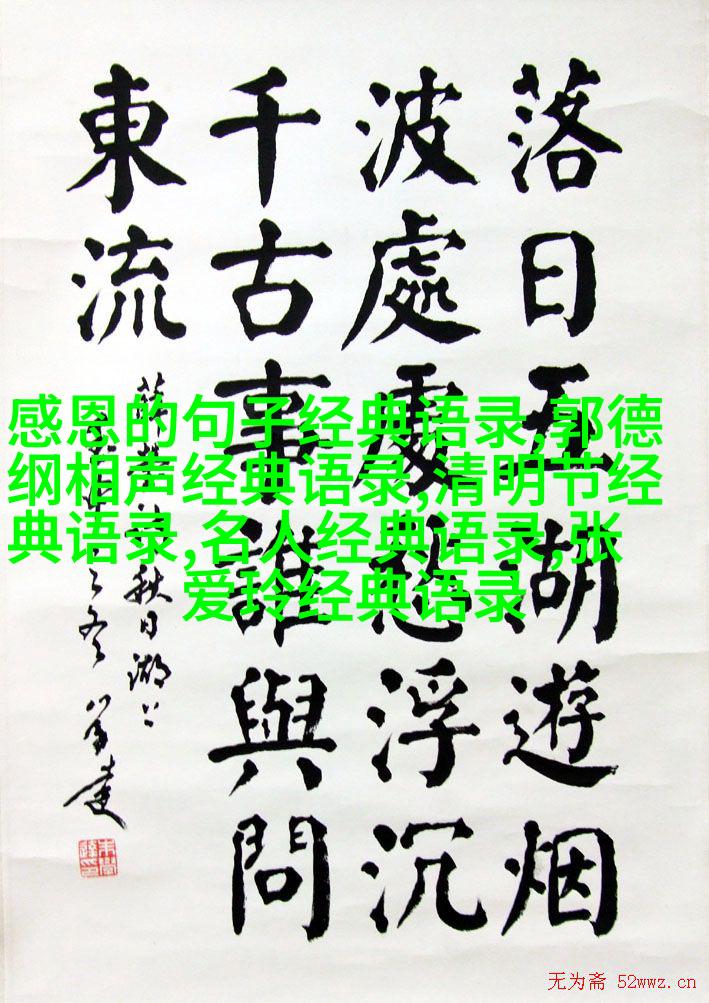 落日五湖遊烟
波處處愁浮沉
千古事誰與問
東流
感恩的句子经典语录,郭德
纲相声经典语录,清明节经
典语录,名人经典语录,张
爱玲经典语录
秋日湖上
无为斋 52wwz.cn